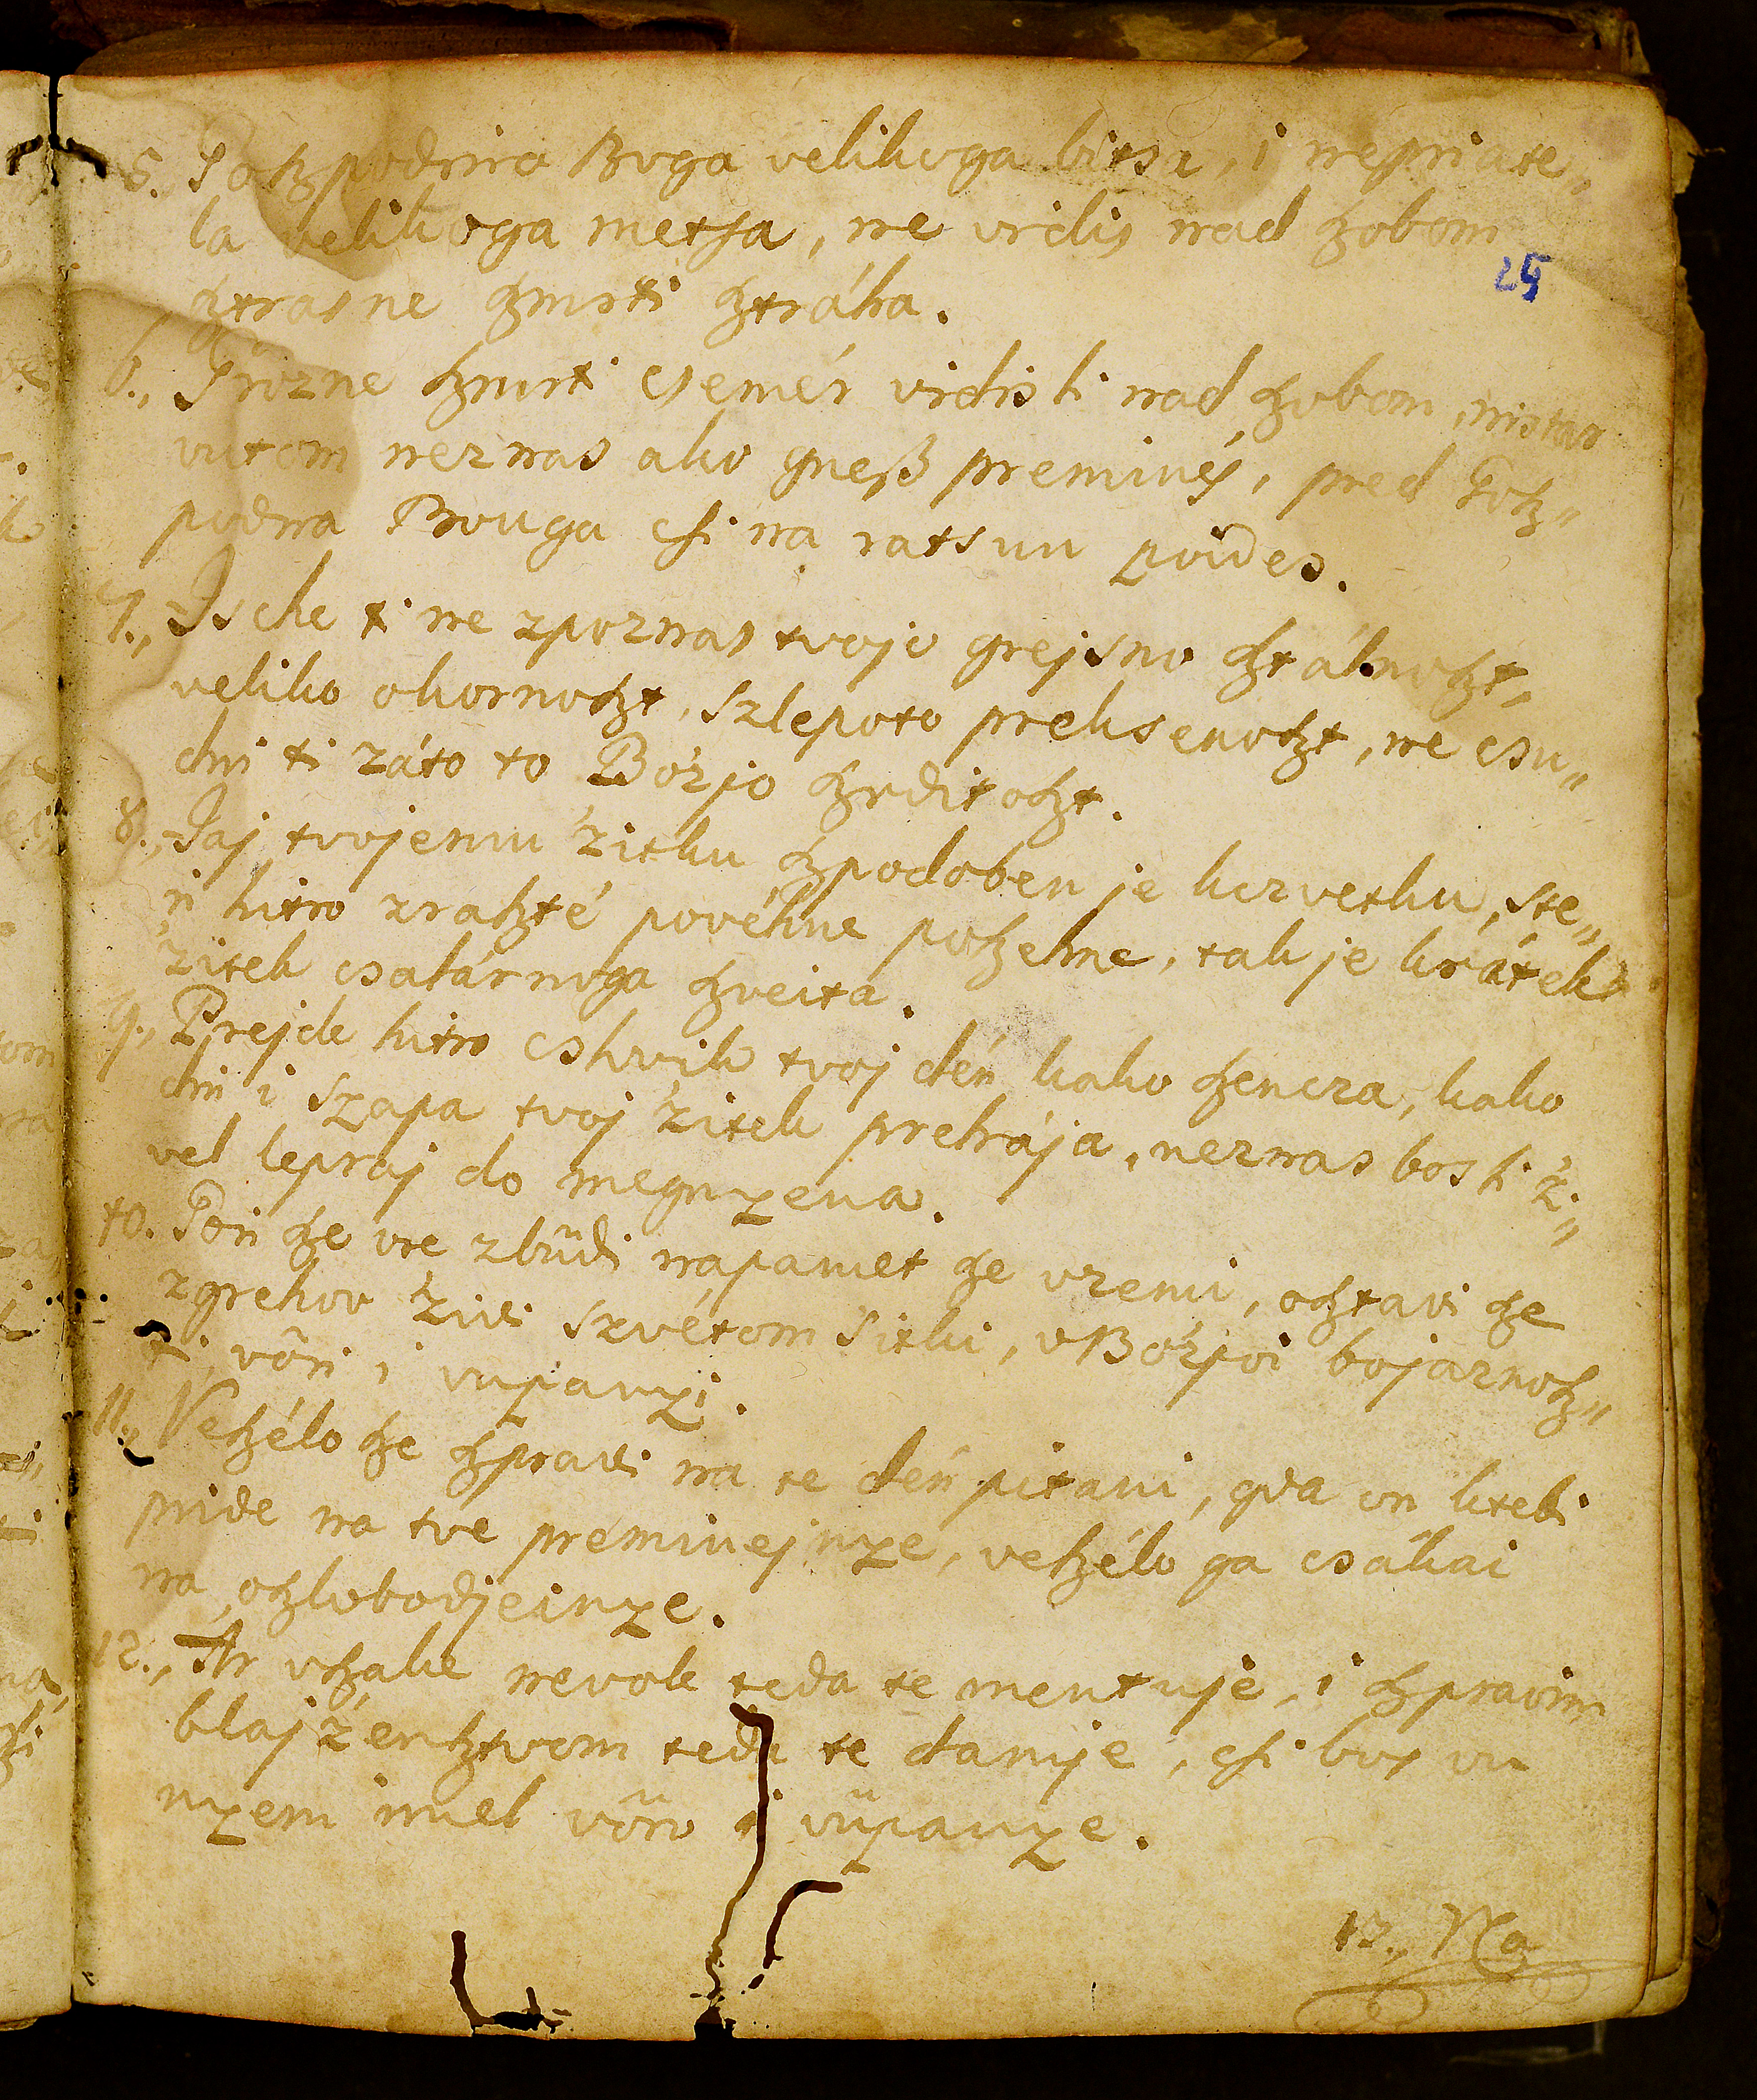 5. Goszpodnira Boga velikoga bitsa, i nepriate„
la velikoga metsa, ne vidis nad szobom
sztrasne szmrti sztráha.
25
6., Grozne szmrti csemér vidis li nad szobom, nistar
vutom neznas ako gnesz preminés, pred Gosz„
podna Bouga csi na ratsun poides.
7., Ische ti ne zpoznas tvojo grejsno sztálnoszt,
veliko okornoszt, szlepoto preksenoszt, ne csu„
dni ti záto to Bózjo szrditoszt.
8., Jaj tvojemu 'zitku szpodoben je kczvetku, ste„
ri hitro zraszté povéhne poszehne, tak je krátek
'zitek csalárnoga szveita.
9., Prejde hitro cshvik tvoj dén kako szencza, kako
dni i szapa tvoj 'zitek prehája, neznas bos li 'zi„
vel lepraj do megnyena.
10. Pori sze vre zbüdi napamet sze vzemi, osztavi sze
zgrehov 'zivi szvétom sitki, v Bózjoi bojaznosz„
ti, vöri i vupanyi.
11., Veszélo sze szpravi na te dén pitani, gda on ktebi
pride na tve preminejnye, veszélo ga csákai
na oszlobodjeinye.
12., Ar vszake nevole teda te mentuje, i szpravim
blaj'zensztvom teda te daruje, csi bos vu
nyem imel vöro i vüpanye.
13., Na